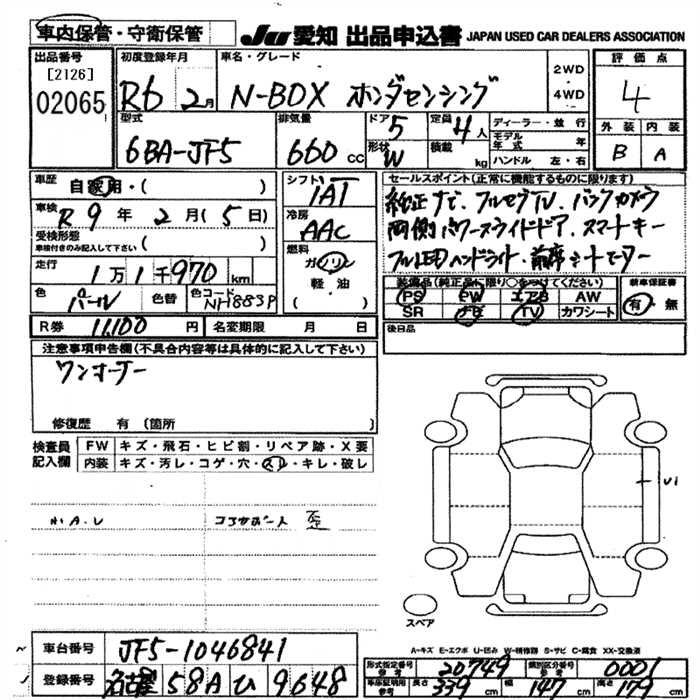 車内保管・守衛保管
JU 愛知 出品申込書 JAPAN USED CAR DEALERS ASSOCIATION
出品番号
[2126]
02065
初度登録年月
R6 2月
車名・グレード
N-BOX ホンダセンシング
2WD
・
4WD
評価点
4
外装 内装
B A
型式
6BA-JF5
排気量
660 cc
ドア 5
形状 W
定員 4人
積載 kg
ディーラー・並行
モデル年式 年
ハンドル 左・右
車歴 自家用・( )
車検 R9年 2月(5日)
受検形態
車検付きのみ記入して下さい ( )
走行 1万1千970km
色 パール 色替 色コード NH883P
シフト
IAT
冷房
AAC
燃料
ガソリン
軽油
( )
セールスポイント(正常に機能するものに限ります)
純正ナビ、フルセグTV、バックカメラ
両側パワースライドドア、スマートキー
フルLEDヘッドライト、前席シートヒーター
装備品(純正品に限り○をつけてください)
PS PW エアB AW
SR ナビ TV カワシート
新車保証書
有・無
後日品
R券 11,100円 名変期限 月 日
注意事項申告欄(不具合内容等は具体的に記入して下さい)
ワンオーナー
修復歴 有(箇所 )
検査員記入欄
FW キズ・飛石・ヒビ割・リペア跡・X要
内装 キズ・汚レ・コゲ・穴・スレ・キレ・破レ
小A.U
コアサポー人 歪
U1
スペア
A-キズ E-エクボ U-凹み W-補修跡 S-サビ C-腐食 XX-交換済
車台番号 JF5-1046841
登録番号 名古屋 58A ひ 9648
形式指定番号 参考 20749 類別区分番号 参考 0001
車庫証明用 参考 長さ 339cm 幅 147cm 高さ 179cm